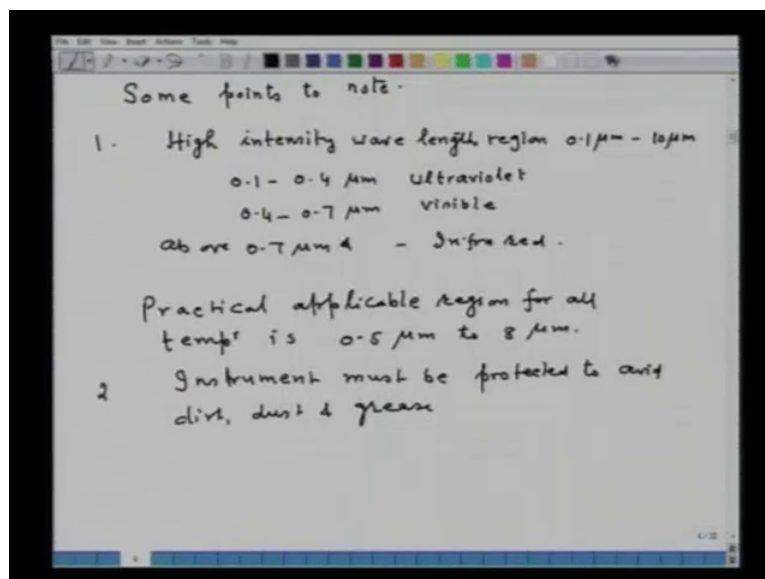 File Edit View Insert Actions Tools Help
Some points to note.
1. High intensity wave length region 0.1 μm - 10 μm
0.1 - 0.4 μm ultraviolet
0.4 - 0.7 μm visible
above 0.7 μm - Infra red.
Practical applicable region for all
tempr is 0.5 μm to 8 μm.
2 Instrument must be protected to avid
dirt, dust & grease